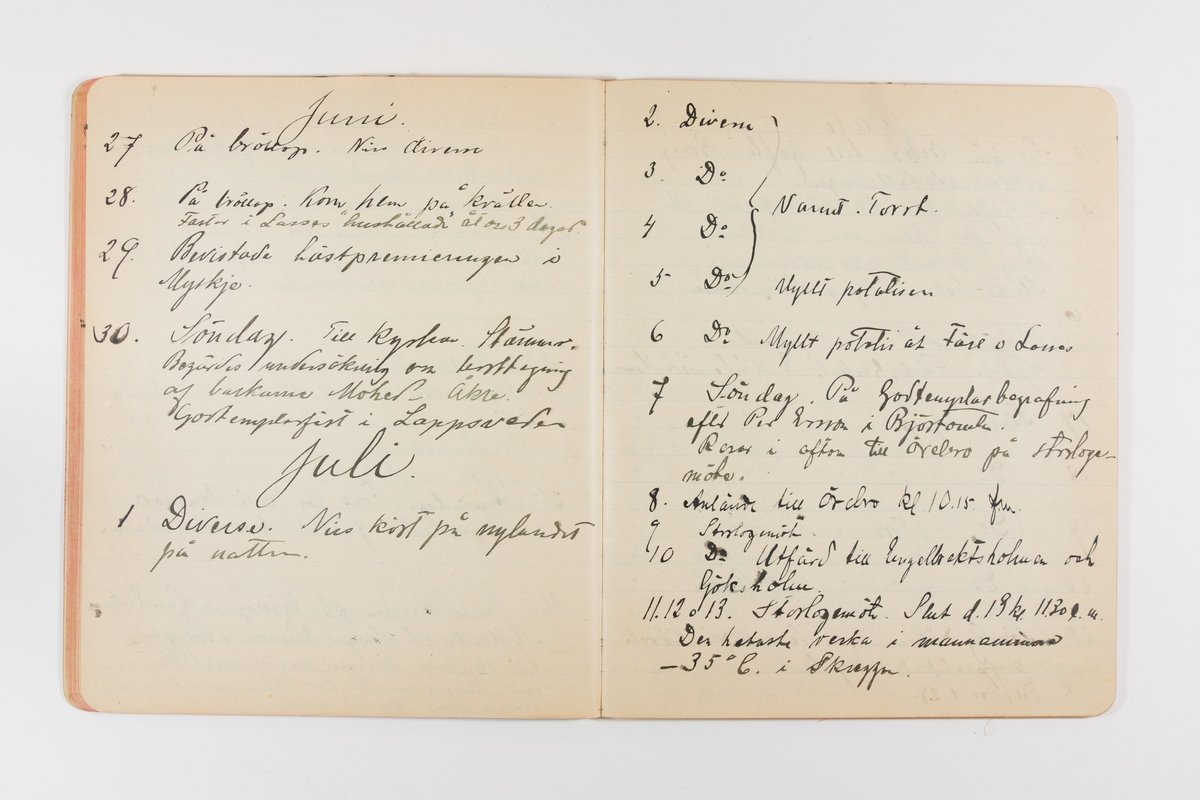 Juni.
27 På bröllop. Nils diverse
28. På bröllop. Kom hem på kvällen.
Faster i Lasses "hushållade" åt oss 3 dagar.
29. Bevistade hästpremieringen i
Myskje.
30. Söndag. Till kyrkan. Stämma.
Begärdes undersökning om
af backarne Mohed - Åkre.
Godtemplarfest i Lappsveden
Juli.
1 Diverse. Nils kört på nylandet
på natten.
2. Diverse
3. Do
Varmt. Torrt.
4 Do
5 Do Myllt potatisen
6 Do Myllt potatis åt Färe o Lasses
7 Söndag. På Godtemplarbegrafning
efter Per Ersson i Björtomten.
Reser i afton till Örebro på storloge-
möte.
8. Anlände till Örebro kl 10.15 fm.
9 Storlogemöte.
10 Do Utfärd till Engelbrektsholmen och
Göksholm
11. 12 o 13. Storlogemöte. Slut d. 13 kl. 11.30 e.m.
Den hetaste vecka i mannaminne
- 35° C. i skuggan.